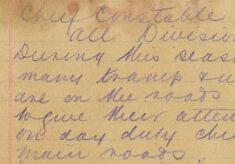 Chief Constable
all Division
During this seas
many tramp & u
are on the roads
to give their atten
on day duty che
main roads.